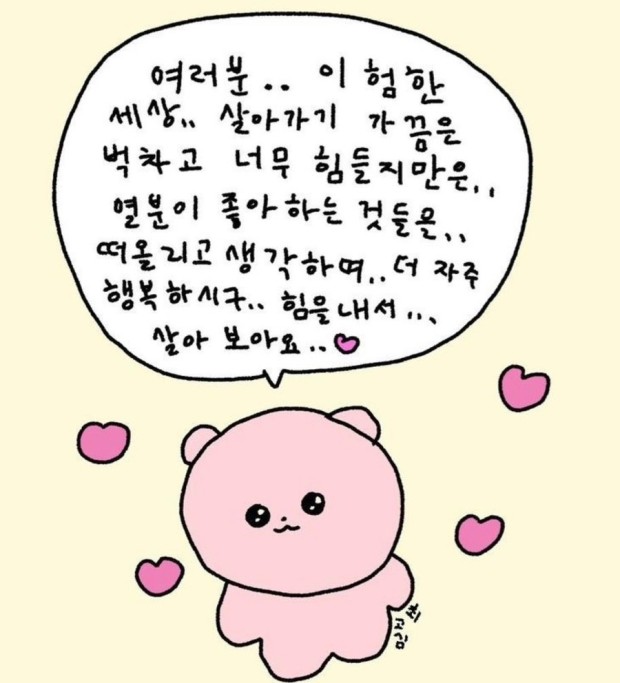 여러분.. 이 험한
세상.. 살아가기 가끔은
벅차고 너무 힘들지만은..
열분이 좋아하는 것들을..
떠올리고 생각하며.. 더 자주
행복하시구.. 힘을내서...
살아 보아요..
최
고
심